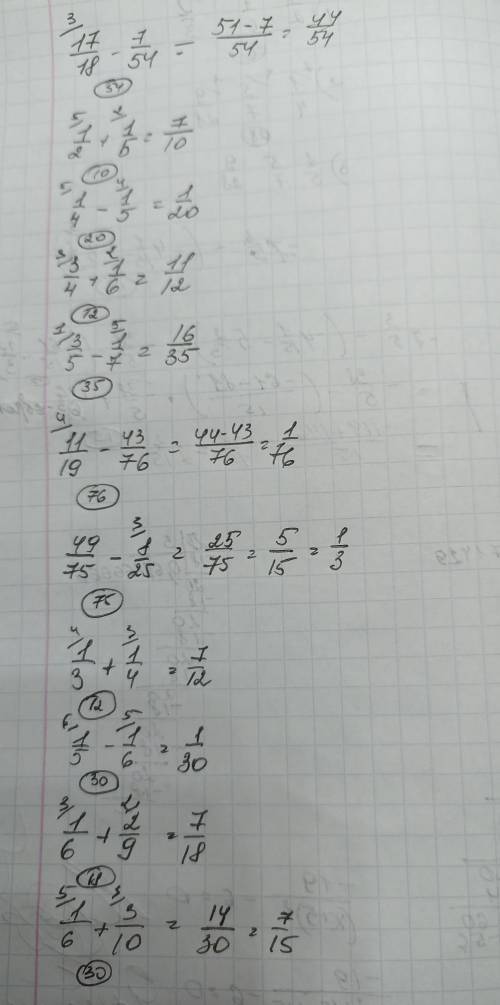 3/ 17/18 - 7/54 = 51-7/54 = 44/54
54
5/ 1/2 + 2/ 1/5 = 7/10
10
5/ 1/4 - 4/ 1/5 = 1/20
20
3/ 3/4 + 2/ 1/6 = 11/12
12
7/ 3/5 - 5/ 1/7 = 16/35
35
4/ 11/19 - 43/76 = 44-43/76 = 1/76
76
49/75 - 3/ 8/25 = 25/75 = 5/15 = 1/3
75
4/ 1/3 + 3/ 1/4 = 7/12
12
6/ 1/5 - 5/ 1/6 = 1/30
30
3/ 1/6 + 2/ 2/9 = 7/18
18
5/ 1/6 + 3/ 3/10 = 14/30 = 7/15
30